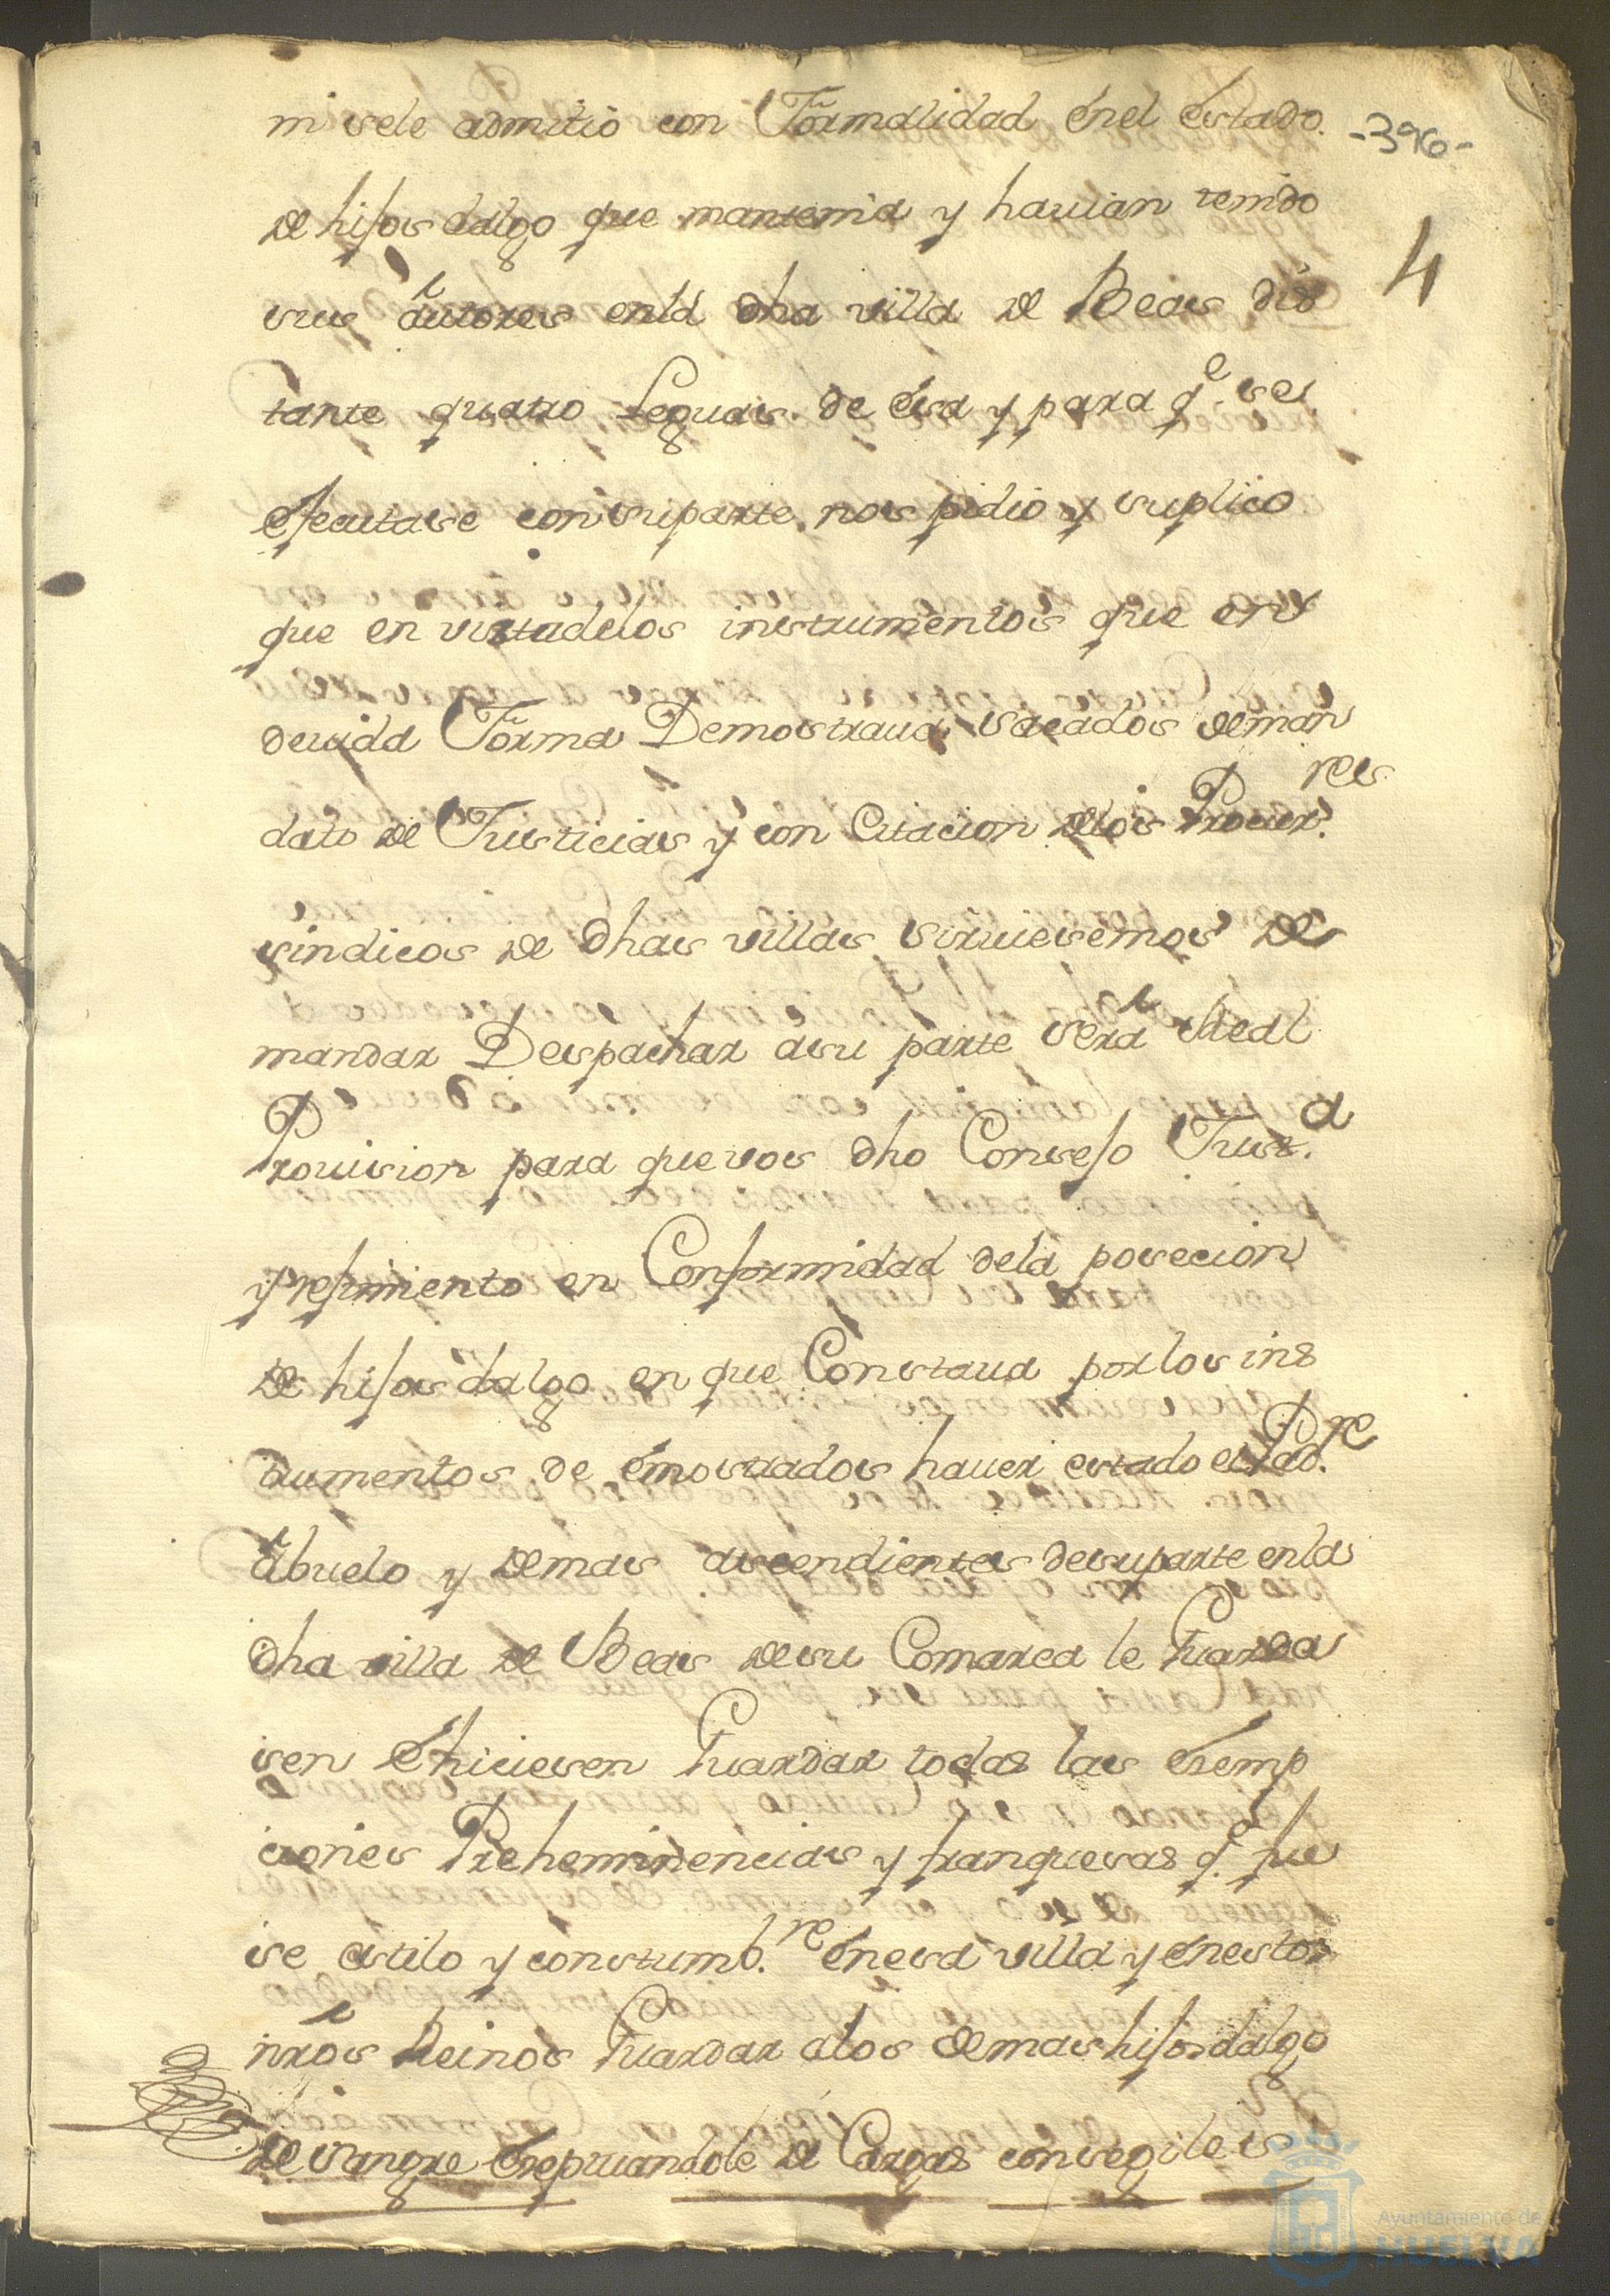 ni sele admitio con Formalidad en el estado. -396-
de hijos dalgo que mantenia y hauian tenido
sus autores enla dha villa de Beas dis 4
tante quatro Leguas de esa y para q.e se
ejecutase con su parte nos pidio y suplico
que en vista delos instrumentos que en
deuida Forma Demostraua sacados deman
dato de Justicias y con Citacion delos Procur.res
sindicos de dhas villas siruiesemos de
mandar Despachar asu parte sera Real
Prouision para que vos dho Consejo Just.a
y rejimiento en Conformidad dela posecion
de hijos dalgo en que Constaua por los ins
trumentos de emostrados hauer estado el Pad.re
abuelo y demas ascendientes de su parte enla
dha villa de Beas desu Comarca le Guarda
sen e hiciesen Guardar todas las esemp
ciones Preheminencias y franquesas q.e fue
se estilo y constumb.re en esa villa y en estos
nros Reinos Guardar alos demas hijos dalgo
de sangre esepruandole de Cargas consegiles
Ayuntamiento de
HUELVA